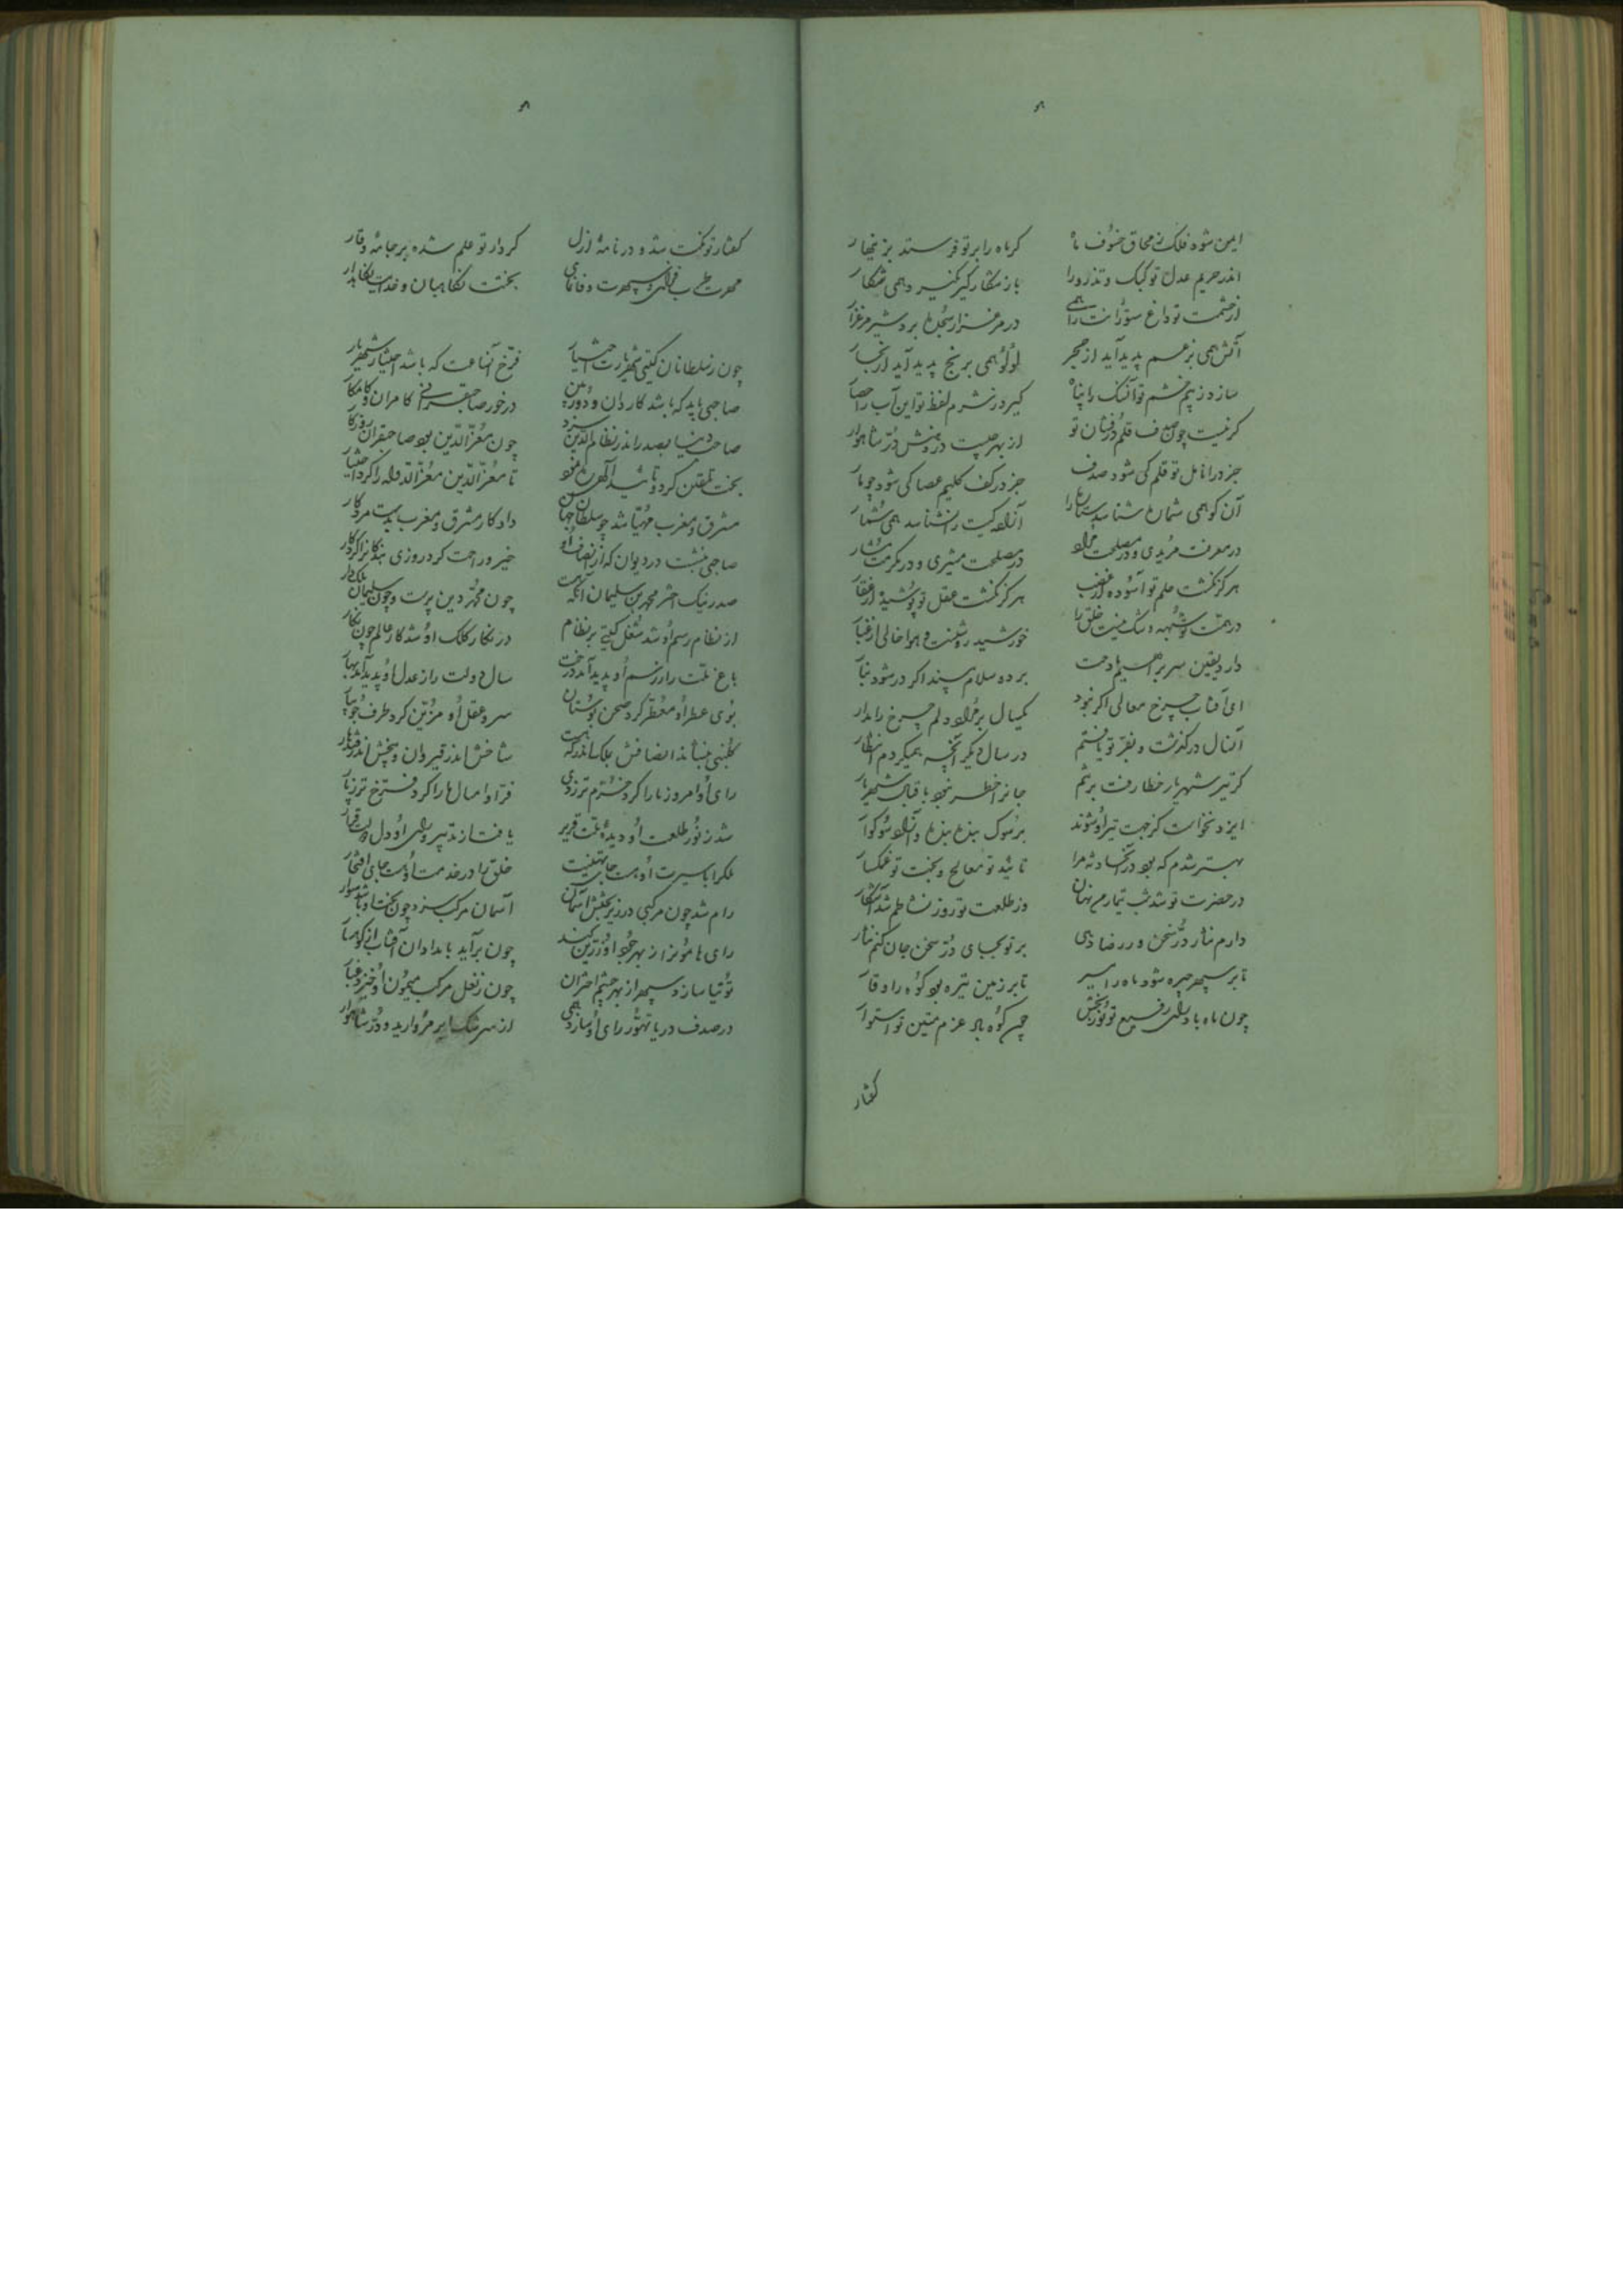 ایمن شود فلک ز محاق خسوف ماه گر ماه را بر تو فرستد بزینهار
اندر حریم عدل تو کبک و تذرو را باز شکار گیر نگیرد همی شکار
از حشمت تو داغ ستوران
آتش همی ز عسم پدید آید از حجر لؤلؤ همی برنج پدید آید از بحار
سازد ز بیم خشم تو آتش سنگ را پناه گیرد ز شرم لفظ تو این آب را حصار
گر نیست چون صدف قلم درفشان تو از بهر چیست در دهنش در شاهوار
جز در انامل تو قلم کی شود صدف جز در کف کلیم عصا کی شود چو مار
آن کو همی شمارهٔ شناسد ستاره را آنرا که کیست داند شناسد همی شمار
در معرفت مریدی و در مصلحت مراد در مصلحت مشیری و در مکرمت مشار
هرگز نگشت حلم تو آسوده از غضب هرگز نگشت عقل تو پوشیده از عقار
در همت تو شبهه و شک نیست خلق را خورشید روشنست و هوا خالی از غبار
دارد یقین سر براهیم اوحت برد و سلام بیند اگر در شود بنار
ای آفتاب چرخ معالی اگر نبود یکسال بر مراد دلم چرخ را مدار
آنسال درگذشت و بفر تو یافتم در سال دیگر آنچه همیکردم انتظار
گر تیر شهریار خطا رفت بر تنم جانرا خطر نبود باقبال شهریار
ایزد نخواست کز جهت تیر او شوند بر سوک بنده بنده و آزاد سوگوار
بهتر شدم که بود در آنحادثه مرا تأیید تو معالج و بخت تو غمگسار
در حضرت تو شد شب تیمارم نهان وز طلعت تو روز نشاطم شد آشکار
دارم نثار در سخن ور رضا دهی بر تو بجای در سخن جان کنم نثار
تا بر سپهر چیره شود ماه را مسیر تا بر زمین تیره بود کوه را وقار
چون ماه باد رای رفیع تو نوربخش چون کوه باد عزم متین تو استوار
گفتار
گفتار تو نکت شده در نامهٔ ازل کردار تو علم شده بر جامهٔ وقار
مهرت وفانمای بختت نگاهبان و خدایت نگاهدار
چون ز سلطانان گیتی شهریارست اختیار فرخ آنساعت که باشد اختیار شهریار
صاحبی باید که باشد کاردان و دوربین در خور صاحبقرانی کامران و کامکار
صاحب دنیا بصدر اندر نظام الدین سزد چون معز الدین بود صاحبقران روزگار
بخت تلقین کرد و تا معز الدین معز الدوله را کرد اختیار
مشرق و مغرب مهیا شد چو سلطان جهان داد کار مشرق و مغرب بدست مرد کار
صاحبی بنشست در دیوان که از انصاف او خیر و راحت کرد روزی بندگانرا کردگار
صدر نیک اختر محمد بن سلیمان آنکه هست چون محمد دین پرست و چون سلیمان ملکدار
از نظام رسم او شد شغل گیتی بر نظام در نگار کلک او شد کار عالم چون نگار
باغ ملت را ز رسم او پدید آمد درخت سال دولت را ز عدل او پدید آمد بهار
بوی عطر او معطر کرد صحن بوستان سرو عقل او مزین کرد طرف جویبار
گلبنی بنشاند انصافش بملک اندر که هست شاخش اندر قیروان و بیخش اندر قندهار
رای او امروز ما را کرد خرم تر ز دی فر او امسال ما را کرد فرخ تر ز پار
شد ز نور طلعت او دیدهٔ ملت قریر یافت از تدبیر و رای او دل دولت قرار
ملک را با سیرت او هست جای تهنیت خلق را در خدمت او هست جای افتخار
رام شد چون مرکبی در زیر بختش آسمان آسمان مرکب سزد چون بخت او باشد سوار
رای هامون از بهر جود او زرین کند چون برآید بامدادان آفتاب از کوهسار
توتیا سازد سپهر از بهر چشم اختران چون ز نعل مرکب میمون او خیزد غبار
در صدف دریا بتهور رای او سازد همی از سرشک ابر مروارید و در شاهوار